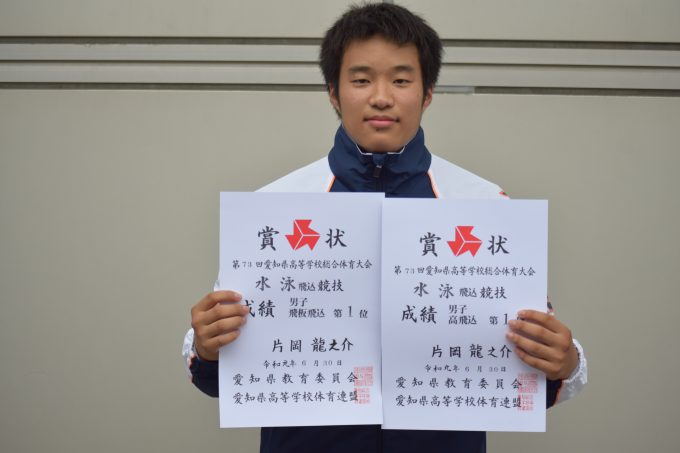 賞 状
第73回愛知県高等学校総合体育大会
水泳飛込競技
成績 男子
飛板飛込 第1位
片岡龍之介
令和元年6月30日
愛知県教育委員会
愛知県高等学校体育連盟
賞 状
第73回愛知県高等学校総合体育大会
水泳飛込競技
成績 男子
高飛込 第1
片岡龍之介
令和元年6月30日
愛知県教育委員会
愛知県高等学校体育連盟